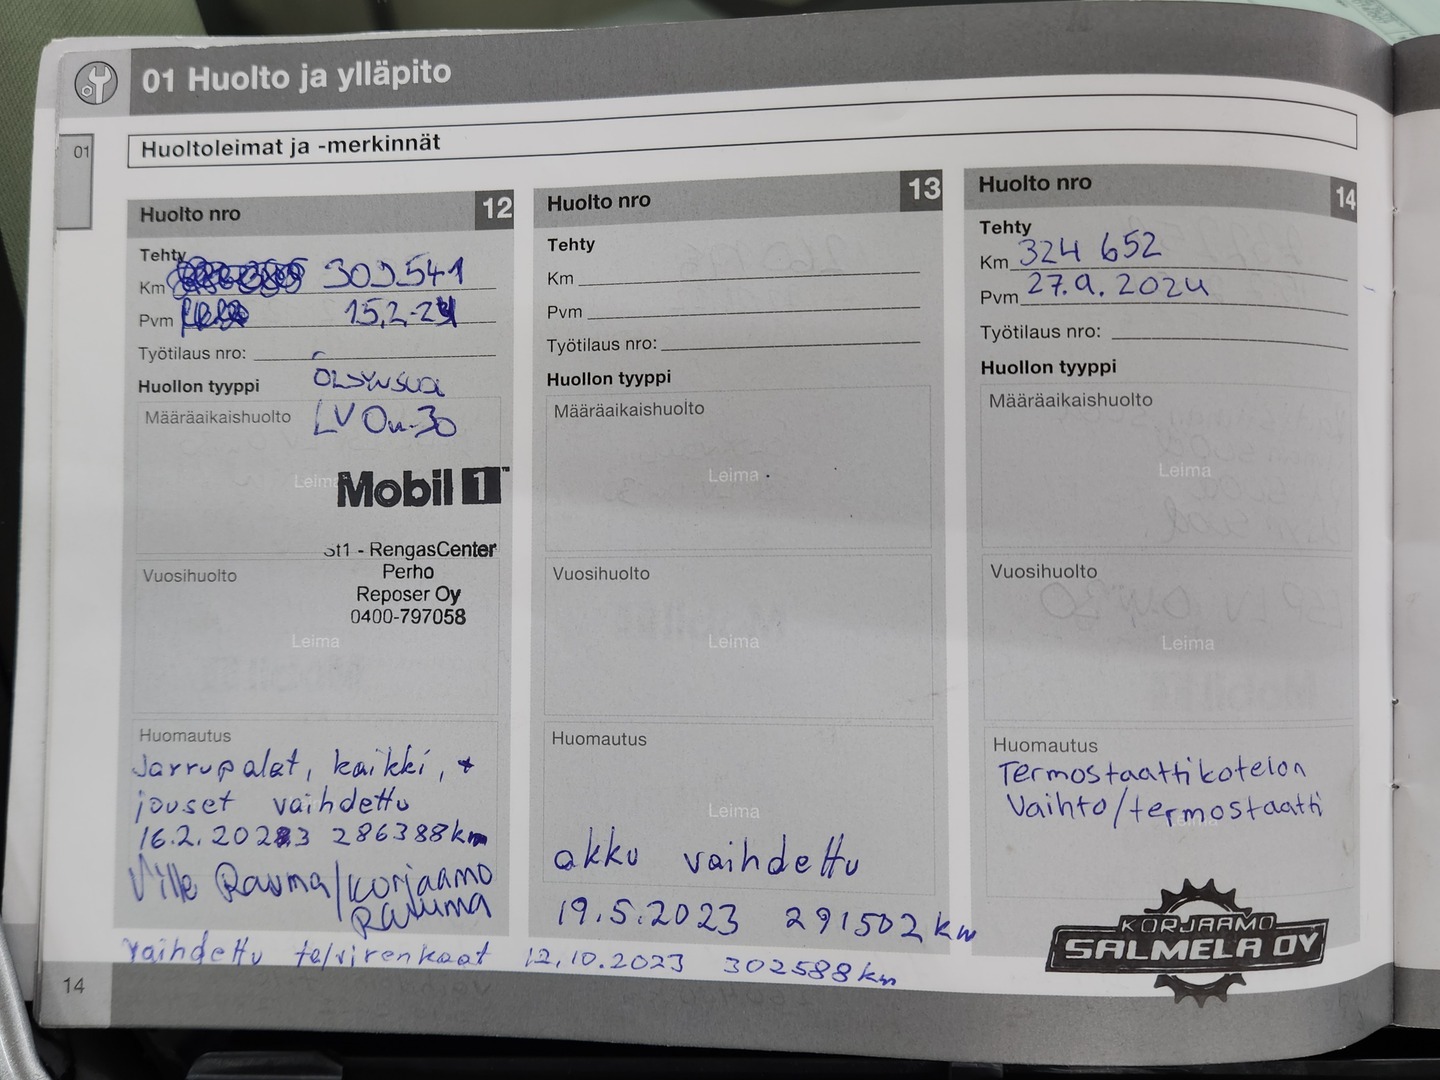 01 Huolto ja ylläpito
01
Huoltoleimat ja -merkinnät
Huolto nro 12
Tehty
Km 309541
Pvm 15.2-24
Työtilaus nro:
Huollon tyyppi
Määräaikaishuolto
LV 0w-30
Leima
Mobil 1™
St1 - RengasCenter
Perho
Reposer Oy
0400-797058
Vuosihuolto
Leima
Huomautus
Jarrupalat, kaikki, +
jouset vaihdettu
16.2.2023 286388km
Ville Rauma/korjaamo
Rauma
Huolto nro 13
Tehty
Km
Pvm
Työtilaus nro:
Huollon tyyppi
Määräaikaishuolto
Leima
Vuosihuolto
Leima
Huomautus
Leima
akku vaihdettu
19.5.2023 291502 km
vaihdettu talvirenkaat 12.10.2023 302588km
Huolto nro 14
Tehty
Km 324 652
Pvm 27.9.2024
Työtilaus nro:
Huollon tyyppi
Määräaikaishuolto
Leima
Vuosihuolto
Leima
Huomautus
Termostaattikotelon
Vaihto/termostaatti
KORJAAMO
SALMELA OY
14